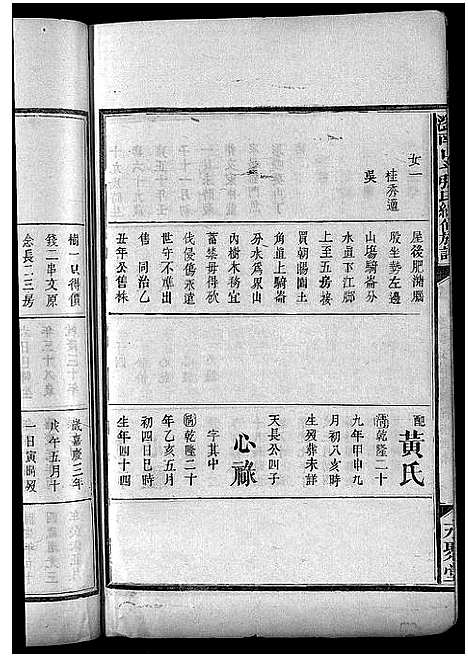 女一
桂秀適
吳
屋後肥豬嘴
殷坐勢左邊
山塲騎崙分
水直下江廊
上至五房接
買朝賜園土
角直上騎崙
分水為界山
內樹木務宜
蓄禁毋得砍
伐侵害致墳
世守不準出
售 同治乙
丑年公售株
配
黃氏
淸乾隆二十
九年甲申九
月初八亥時
生歿葬未詳
天長公四子
心祿
字其中
乾隆二十
年乙亥五月
初四日巳時
生年四十四
樹一田得價
錢二串文原
念長二三房
歲嘉慶三年
戊午五月十
一日寅時歿